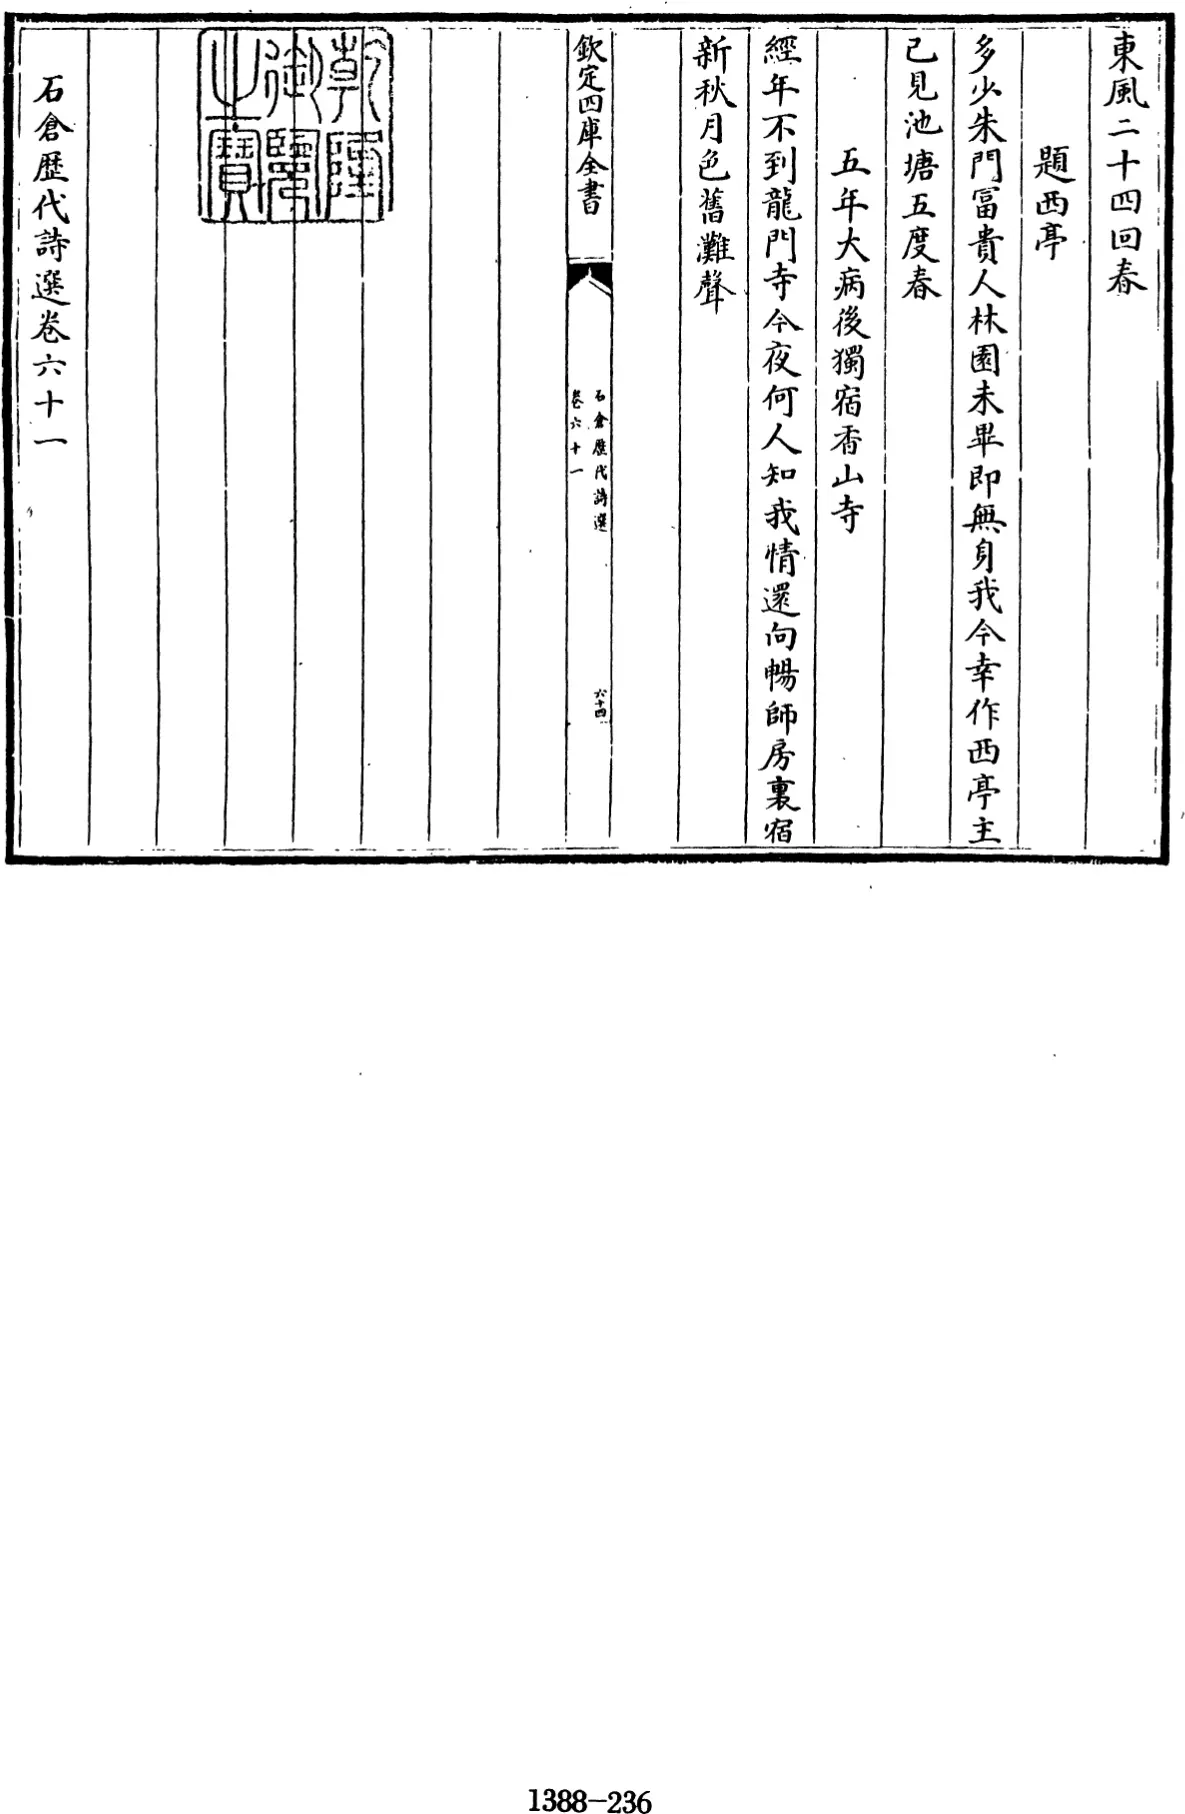 東風二十四回春
題西亭
多少朱門富貴人林園未畢即無身我今幸作西亭主
已見池塘五度春
五年大病後獨宿香山寺
經年不到龍門寺今夜何人知我情還向暢師房裏宿
新秋月色舊灘聲
欽定四庫全書
石倉歷代詩選
卷六十一
六十四
乾隆
御覽
之寶
石倉歷代詩選卷六十一
1388-236